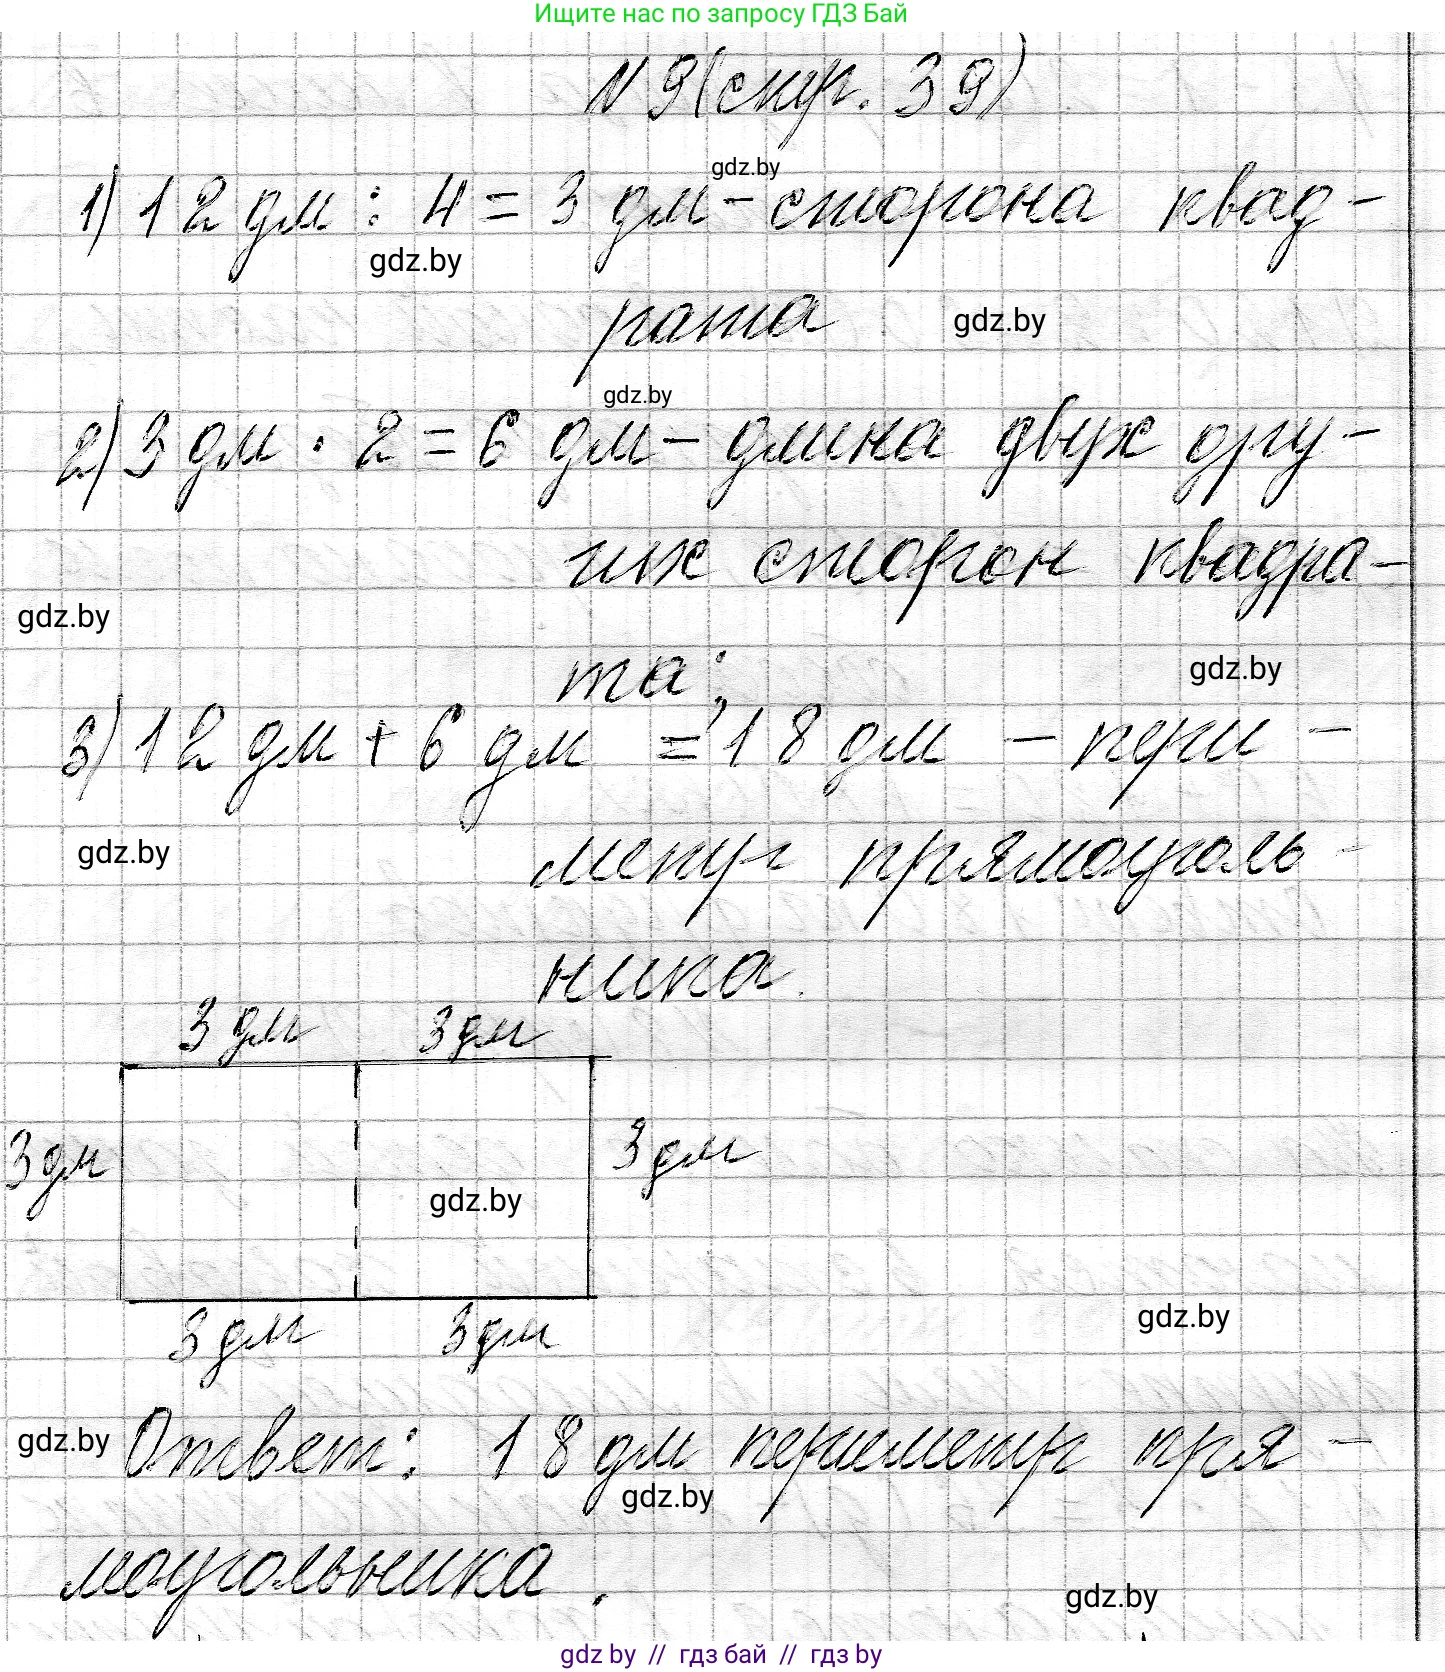 Ищите нас по запросу ГДЗ Бай
N 9 (стр. 39)
gdz.by
1) 12 дм : 4 = 3 дм - сторона квад-
gdz.by
рата
gdz.by
gdz.by
2) 3 дм · 2 = 6 дм - длина двух дру-
гих сторон квадра-
gdz.by
та;
gdz.by
3) 12 дм + 6 дм = 18 дм - пери-
gdz.by
метр прямоуголь-
ника.
3 дм 3 дм
3 дм 3 дм
gdz.by
3 дм 3 дм
gdz.by
gdz.by
Ответ: 18 дм периметр пря-
gdz.by
моугольника.
gdz.by
gdz by // гдз бай // гдз by